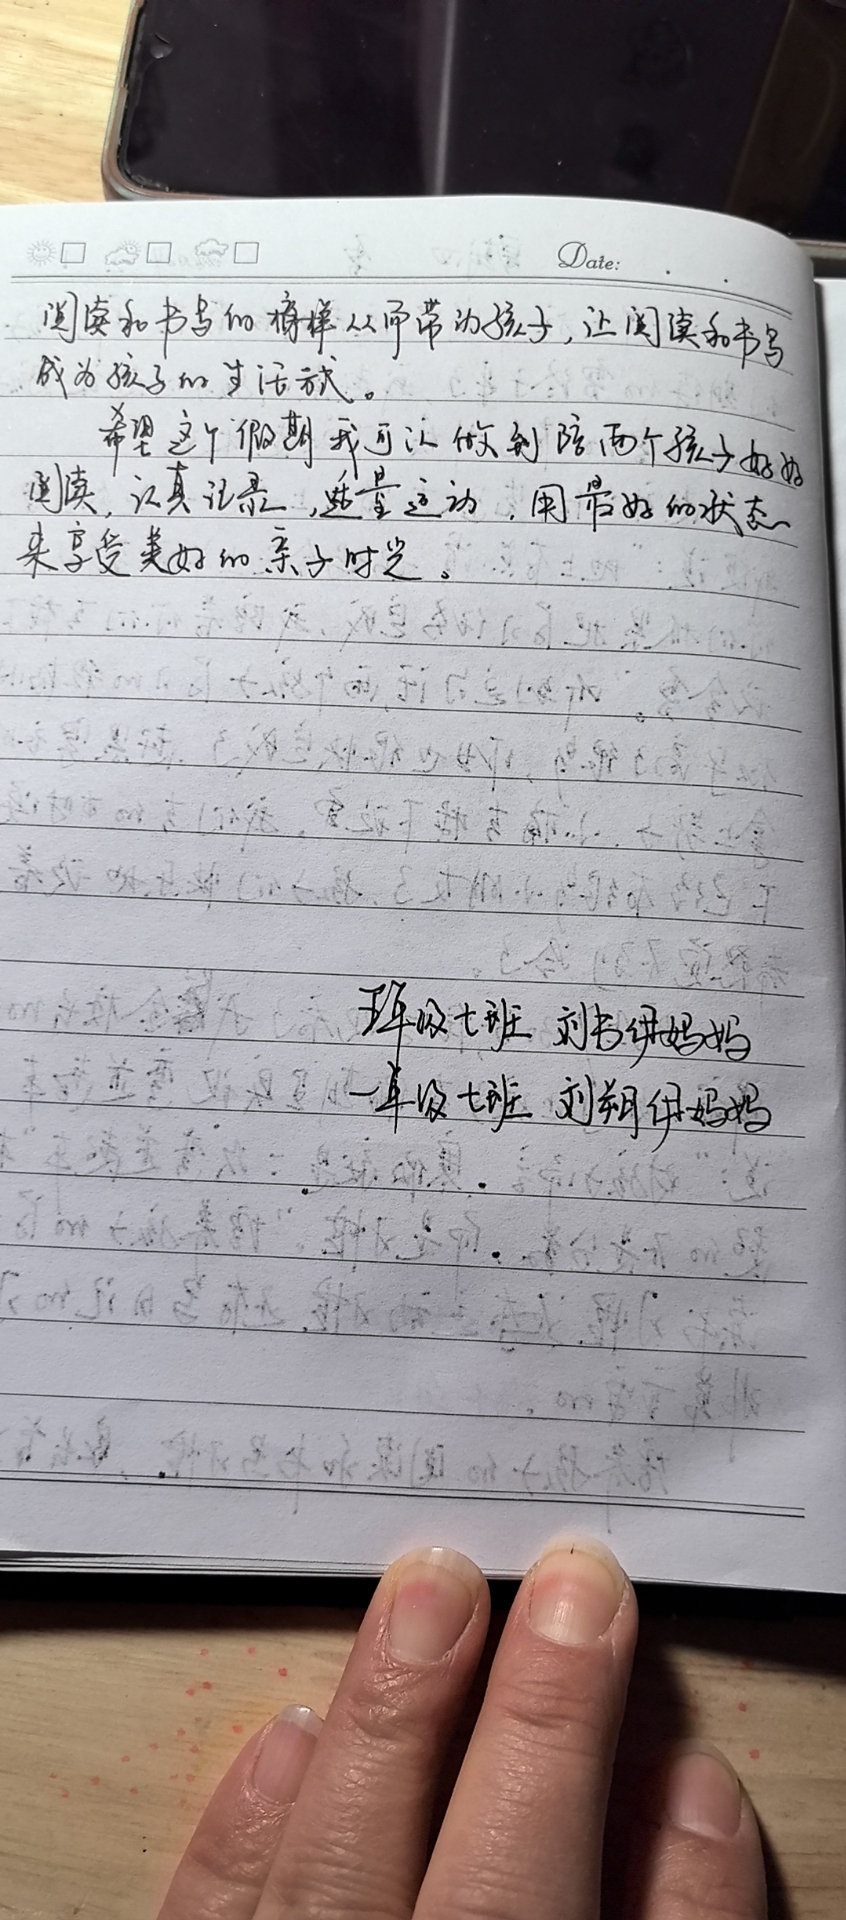 Date:
阅读和书写的榜样从而带动孩子,让阅读和书写
成为孩子的生活方式。
希望这个假期我可以做到陪两个孩子好好
阅读,认真记录,适量运动,用最好的状态
来享受美好的亲子时光。
年级七班 刘书伊妈妈
一年级七班 刘朔伊妈妈